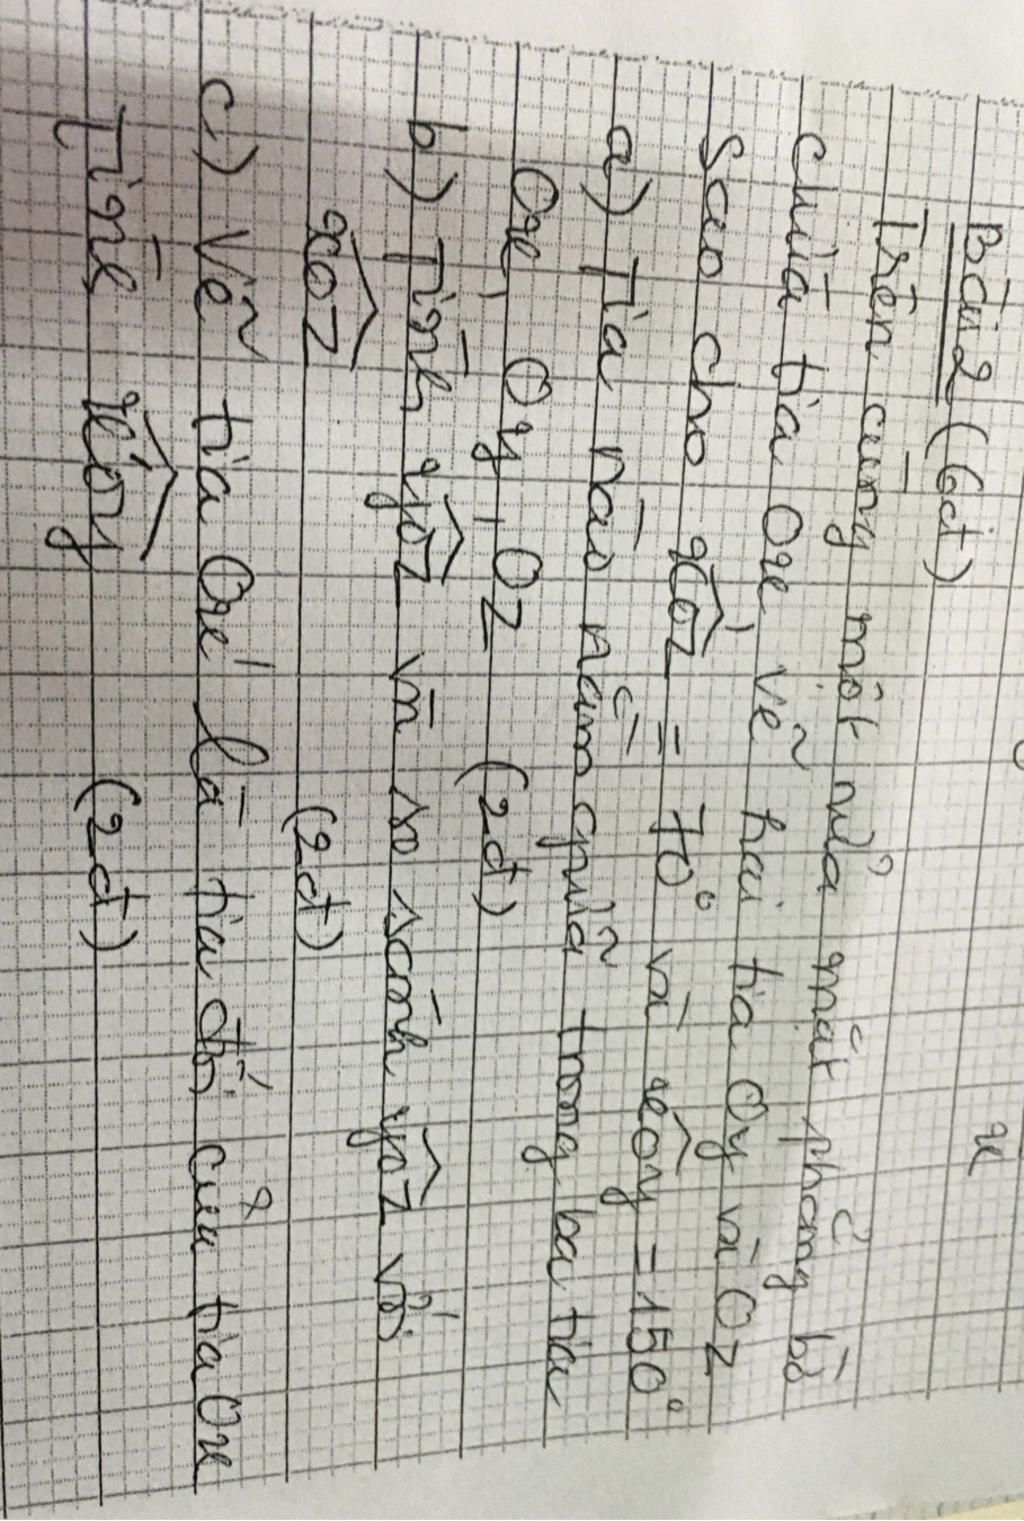 x
Bài 2 (6đ)
Trên cùng một nửa mặt phẳng bờ
chứa tia Ox vẽ hai tia Oy và Oz
sao cho xôz = 70° và xôy = 150°
a) Tia nào nằm giữa trong ba tia
Ox, Oy, Oz (2đ)
b) Tính yôz và so sánh yôz với
xôz (2đ)
c.) Vẽ tia Ox' là tia đối của tia Ox
Tính x'ôy (2đ)